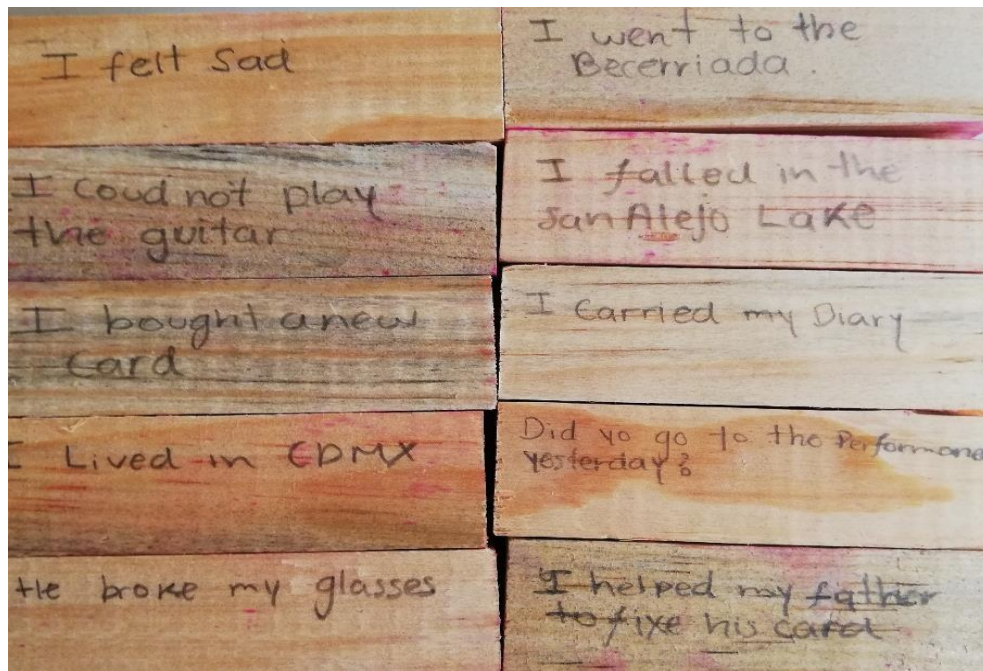 I felt sad
I coud not play
the guitar
I bought a new
card
I Lived in CDMX
He broke my glasses
I went to the
Becerriada.
I falled in the
San Alejo Lake
I carried my Diary
Did yo go to the Performane
yesterday?
I helped my father
to fixe his card